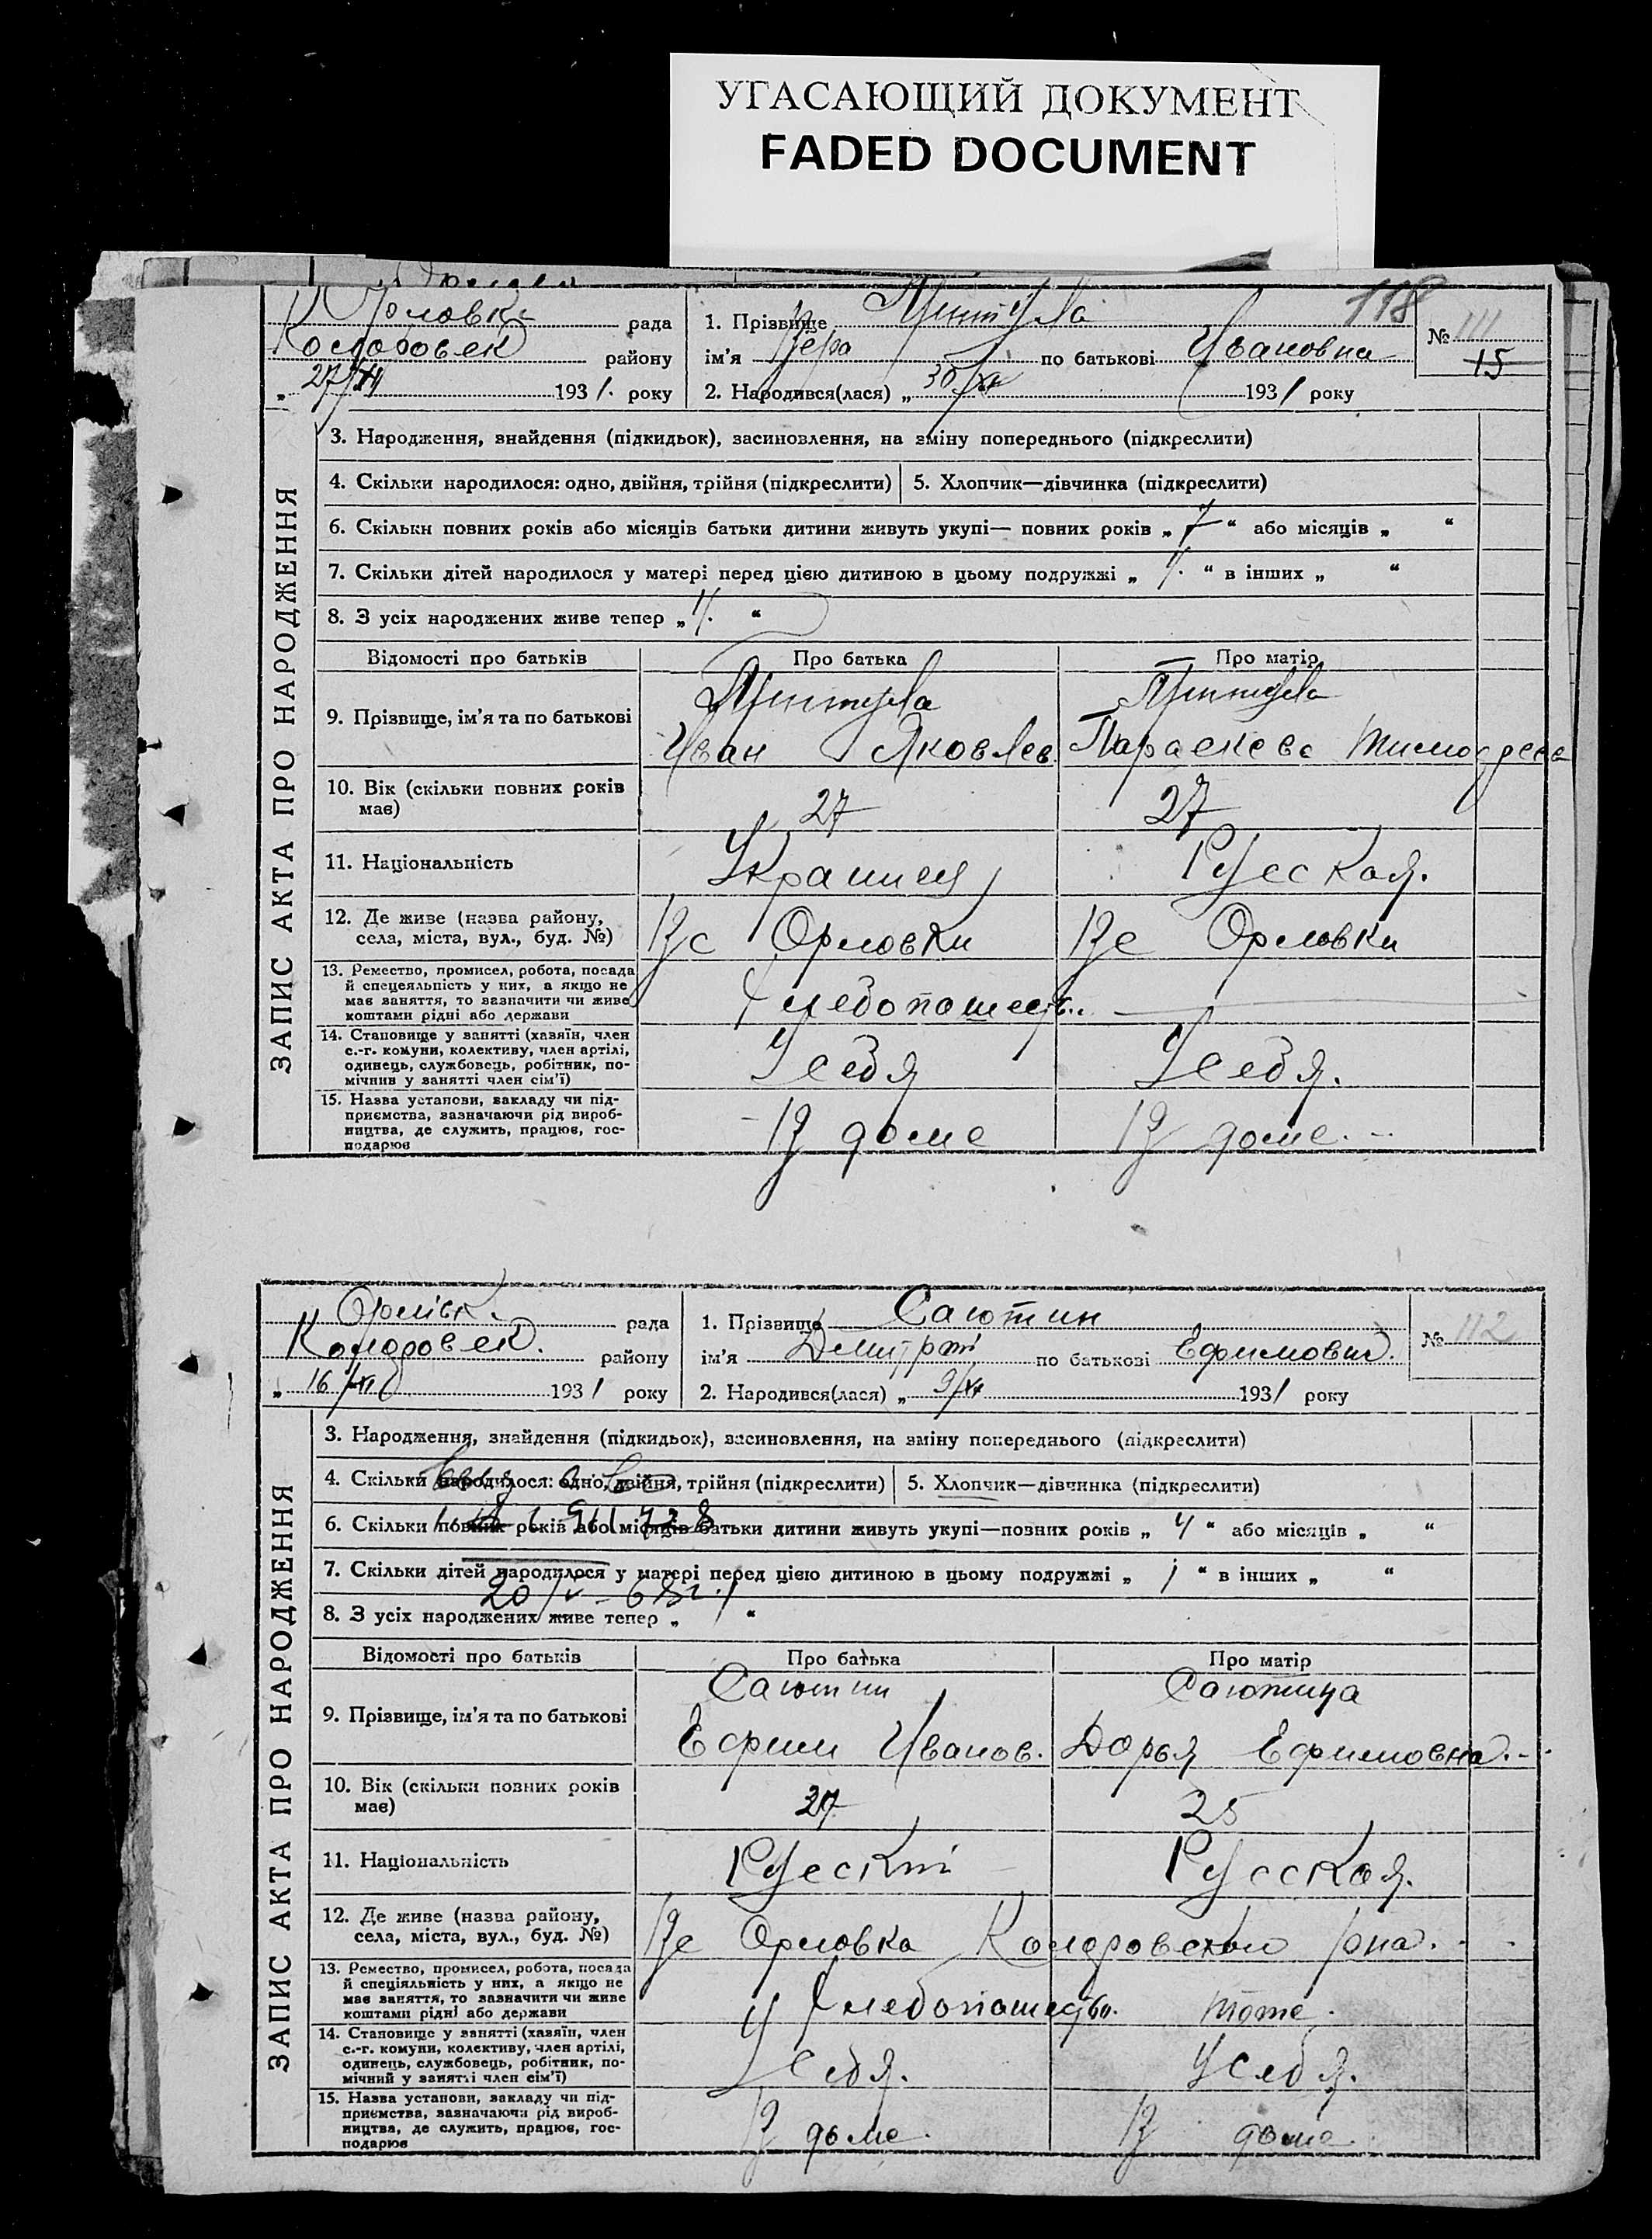 УГАСАЮЩИЙ ДОКУМЕНТ
FADED DOCUMENT
118
Орловк. рада
району
27/XII 1931. року
1. Прізвище
ім'я Вера по батькові Ивановна
2. Народився(лася) „ 30/XI 1931 року
№ 111
15
ЗАПИС АКТА ПРО НАРОДЖЕННЯ
3. Народження, знайдення (підкидьок), засиновлення, на зміну попереднього (підкреслити)
4. Скільки народилося: одно, двійня, трійня (підкреслити) 5. Хлопчик—дівчинка (підкреслити)
6. Скільки повних років або місяців батьки дитини живуть укупі— повних років „ 7 “ або місяців „ “
7. Скільки дітей народилося у матері перед цією дитиною в цьому подружжі „ “ в інших „ “
8. З усіх народжених живе тепер „ “
Відомості про батьків Про батька Про матір
9. Прізвище, ім'я та по батькові
Иван Яковлев Параскева Тимофеев
10. Вік (скільки повних років має) 27 27
11. Національність Украинец Русская.
12. Де живе (назва району, села, міста, вул., буд. №) В с Орловки В с Орловки
13. Ремество, промисел, робота, посада
й спецеяльність у них, а якщо не
має заняття, то зазначити чи живе
коштами рідні або держави
Хлебопашеств.
14. Становище у занятті (хазяїн, член
с.-г. комуни, колективу, член артілі,
одинець, службовець, робітник, по-
мічник у занятті член сім'ї)
У себя У себя.
15. Назва установи, закладу чи під-
приємства, зазначаючи рід вироб-
ництва, де служить, працює, гос-
подарює
В доме В доме.
Орлівк. рада
Комдровск. району
„ 16/XII 1931 року
1. Прізвище Саютин
ім'я Дмитрій по батькові Ефимович.
2. Народився(лася) „ 9/XI 1931 року
№ 112
ЗАПИС АКТА ПРО НАРОДЖЕННЯ
3. Народження, знайдення (підкидьок), засиновлення, на зміну попереднього (підкреслити)
4. Скільки народилося: одно, двійня, трійня (підкреслити) 5. Хлопчик—дівчинка (підкреслити)
6. Скільки повних років або місяців батьки дитини живуть укупі—повних років „ 4 “ або місяців „ “
7. Скільки дітей народилося у матері перед цією дитиною в цьому подружжі „ 1 “ в інших „ “
8. З усіх народжених живе тепер „ “
Відомості про батьків Про батька Про матір
Саютин Саютина
9. Прізвище, ім'я та по батькові
Ефим Иванов. Дарья Ефимовна.
10. Вік (скільки повних років має) 27 25
11. Національність Русскій Русская.
12. Де живе (назва району, села, міста, вул., буд. №) В с Орловка Комдровского рна.
13. Ремество, промисел, робота, посада
й спеціяльність у них, а якщо не
має заняття, то зазначити чи живе
коштами рідні або держави
Хлебопашеств. тоже.
14. Становище у занятті (хазяїн, член
с.-г. комуни, колективу, член артілі,
одинець, службовець, робітник, по-
мічний у занятті член сім'ї)
У себя. У себя.
15. Назва установи, закладу чи під-
приємства, зазначаючи рід вироб-
ництва, де служить, працює, гос-
подарює
В доме. В доме.